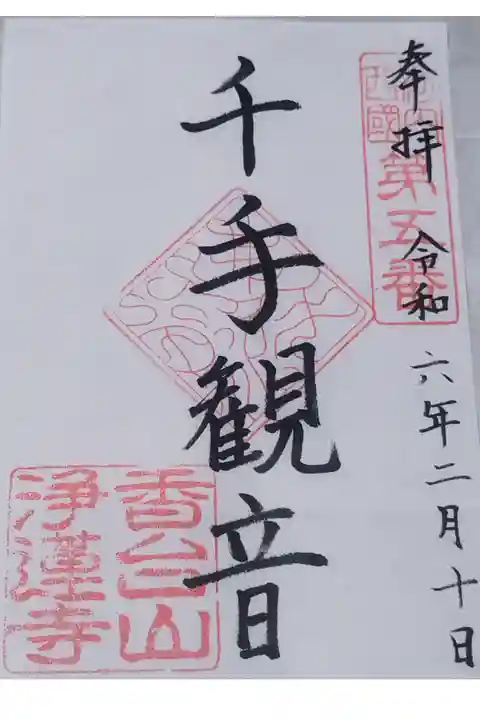 奉拝 令和六年二月十日
西國
第五番
千手観音
香台山
浄蓮寺